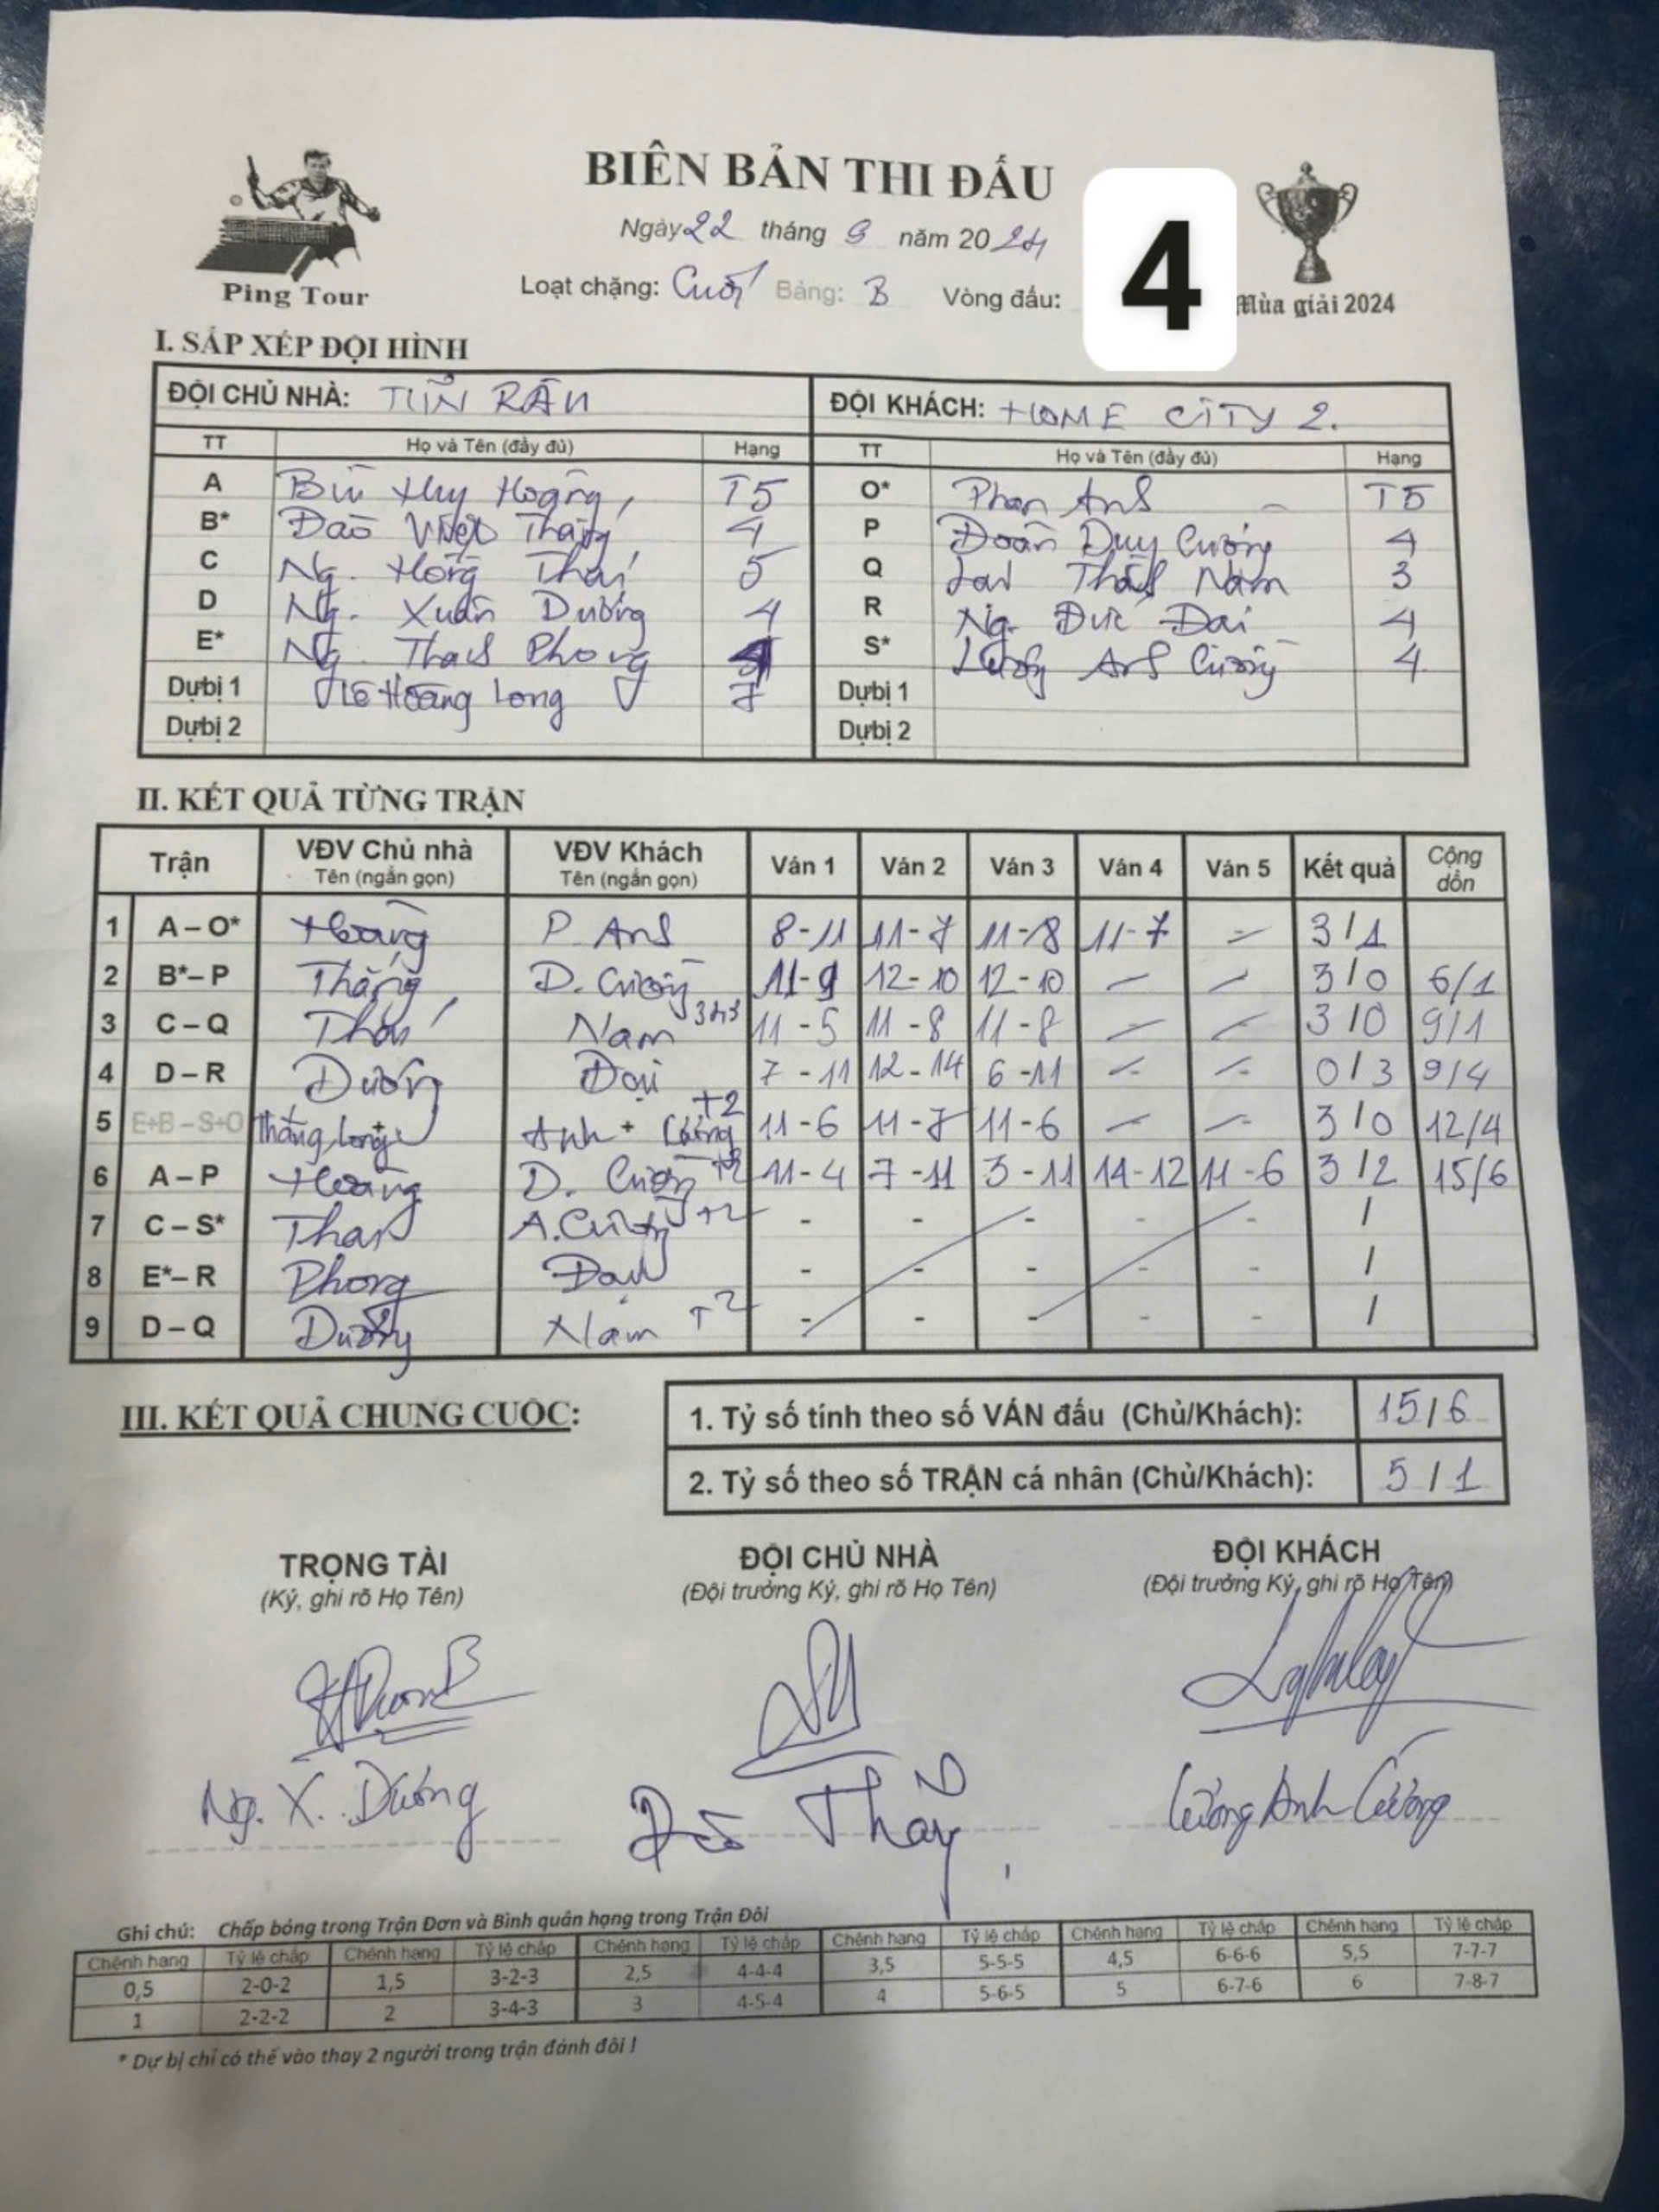 BIÊN BẢN THI ĐẤU
4
Ngày 22 tháng 9 năm 2024
Ping Tour
Loạt chặng: Cuối Bảng: B Vòng đấu:
Mùa giải 2024
I. SẮP XẾP ĐỘI HÌNH
ĐỘI CHỦ NHÀ: TUẤN RÂU ĐỘI KHÁCH: HOME CITY 2.
TT Họ và Tên (đầy đủ) Hạng TT Họ và Tên (đầy đủ) Hạng
A Bùi Huy Hoàng T5 O* Phan Anh T5
B* Đào Việt Thắng 4 P Đoàn Duy Cường 4
C Ng. Hồng Thái 5 Q Thành Nam 3
D Ng. Xuân Dương 4 R Ng. Đức Đại 4
E* Ng. Thanh Phong S* Lương Anh Cường 4
Dự bị 1 Lê Hoàng Long 7 Dự bị 1
Dự bị 2 Dự bị 2
II. KẾT QUẢ TỪNG TRẬN
Trận VĐV Chủ nhà Tên (ngắn gọn) VĐV Khách Tên (ngắn gọn) Ván 1 Ván 2 Ván 3 Ván 4 Ván 5 Kết quả Cộng dồn
1 A – O* Hoàng P. Anh 8-11 11-7 11-8 11-7 - 3/1
2 B*– P Thắng D. Cường 11-9 12-10 12-10 - - 3/0 6/1
3 C – Q Thái Nam 343 11-5 11-8 11-8 - - 3/0 9/1
4 D – R Dương Đại 7-11 12-14 6-11 - - 0/3 9/4
5 E+B – S+O Thắng + Long Anh + Cường +2 11-6 11-7 11-6 - - 3/0 12/4
6 A – P Hoàng D. Cường +2 11-4 7-11 3-11 14-12 11-6 3/2 15/6
7 C – S* Thái A. Cường +2 - - - - - /
8 E*– R Phong Đại - - - - - /
9 D – Q Dương Nam +2 - - - - - /
III. KẾT QUẢ CHUNG CUỘC:
1. Tỷ số tính theo số VÁN đấu (Chủ/Khách): 15/6
2. Tỷ số theo số TRẬN cá nhân (Chủ/Khách): 5/1
TRỌNG TÀI ĐỘI CHỦ NHÀ ĐỘI KHÁCH
(Ký, ghi rõ Họ Tên) (Đội trưởng Ký, ghi rõ Họ Tên) (Đội trưởng Ký, ghi rõ Họ Tên)
Ng. X. Dương Lương Anh Cường
Ghi chú: Chấp bóng trong Trận Đơn và Bình quân hạng trong Trận Đôi
Chênh hạng Tỷ lệ chấp Chênh hạng Tỷ lệ chấp Chênh hạng Tỷ lệ chấp Chênh hạng Tỷ lệ chấp Chênh hạng Tỷ lệ chấp Chênh hạng Tỷ lệ chấp
0,5 2-0-2 1,5 3-2-3 2,5 4-4-4 3,5 5-5-5 4,5 6-6-6 5,5 7-7-7
1 2-2-2 2 3-4-3 3 4-5-4 4 5-6-5 5 6-7-6 6 7-8-7
* Dự bị chỉ có thể vào thay 2 người trong trận đánh đôi !